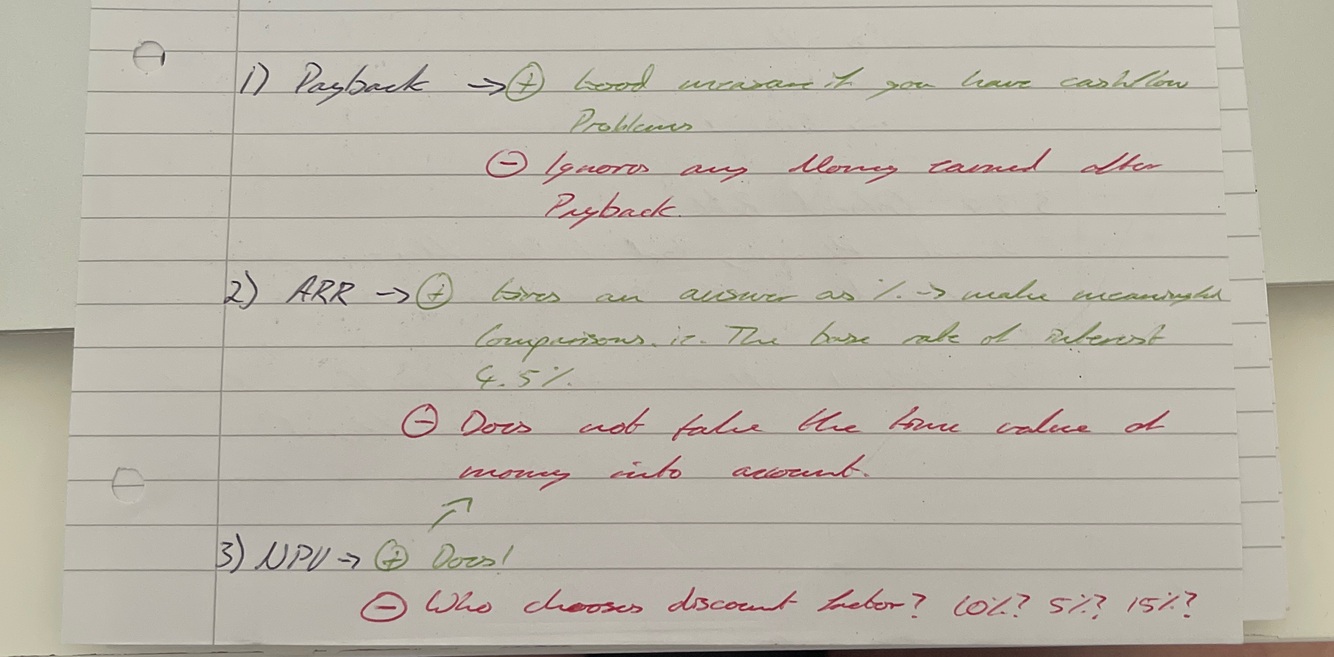 1) Payback → ⊕ Good measure if you have cashflow
Problems
⊖ Ignores any Money earned after
Payback.
2) ARR → ⊕ Gives an answer as % → make meaningful
Comparisons. ie. The base rate of interest
4.5%.
⊖ Does not take the time value of
money into account.
↗
3) NPV → ⊕ Does!
⊖ Who chooses discount factor? 10%? 5%? 15%?